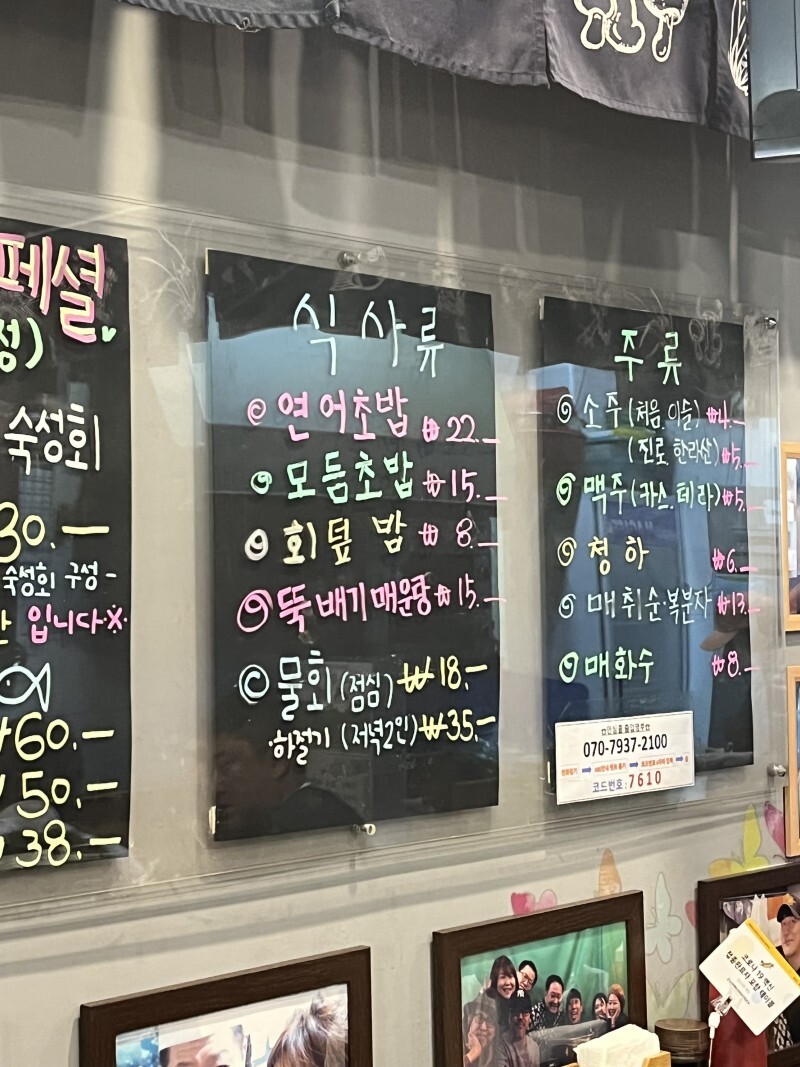 페셜
성)
숙성회
30.—
숙성회 구성-
입니다※
60.—
50.—
38.—
식사류
연어초밥 ₩22.—
모듬초밥 ₩15.—
회덮밥 ₩8.—
뚝배기매운탕 ₩15.—
물회(점심) ₩18.—
하절기 (저녁2인) ₩35.—
주류
소주(처음.이슬) ₩4.—
(진로.한라산) ₩5.—
맥주(카스.테라) ₩5.—
청하 ₩6.—
매취순·복분자 ₩13.—
매화수 ₩8.—
070-7937-2100
코드번호:7610
코로나 19 백신
접종완료자 포함 테이블